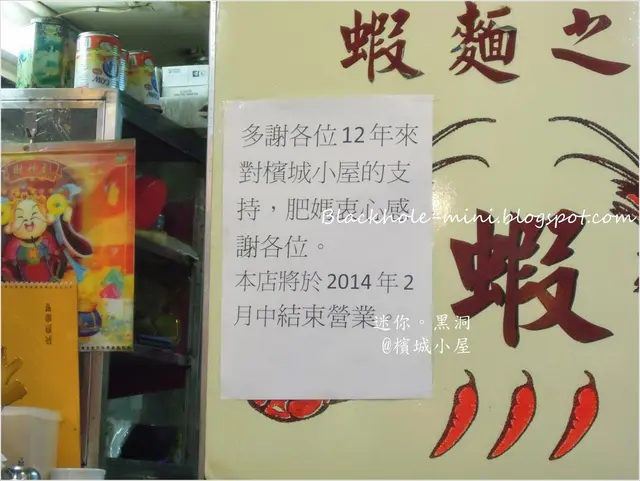 蝦麵之
多謝各位12年來
對檳城小屋的支
持，肥媽衷心感
謝各位。
本店將於2014年2
月中結束營業
Blackhole-mini.blogspot.com
蝦
迷你。黑洞
@檳城小屋